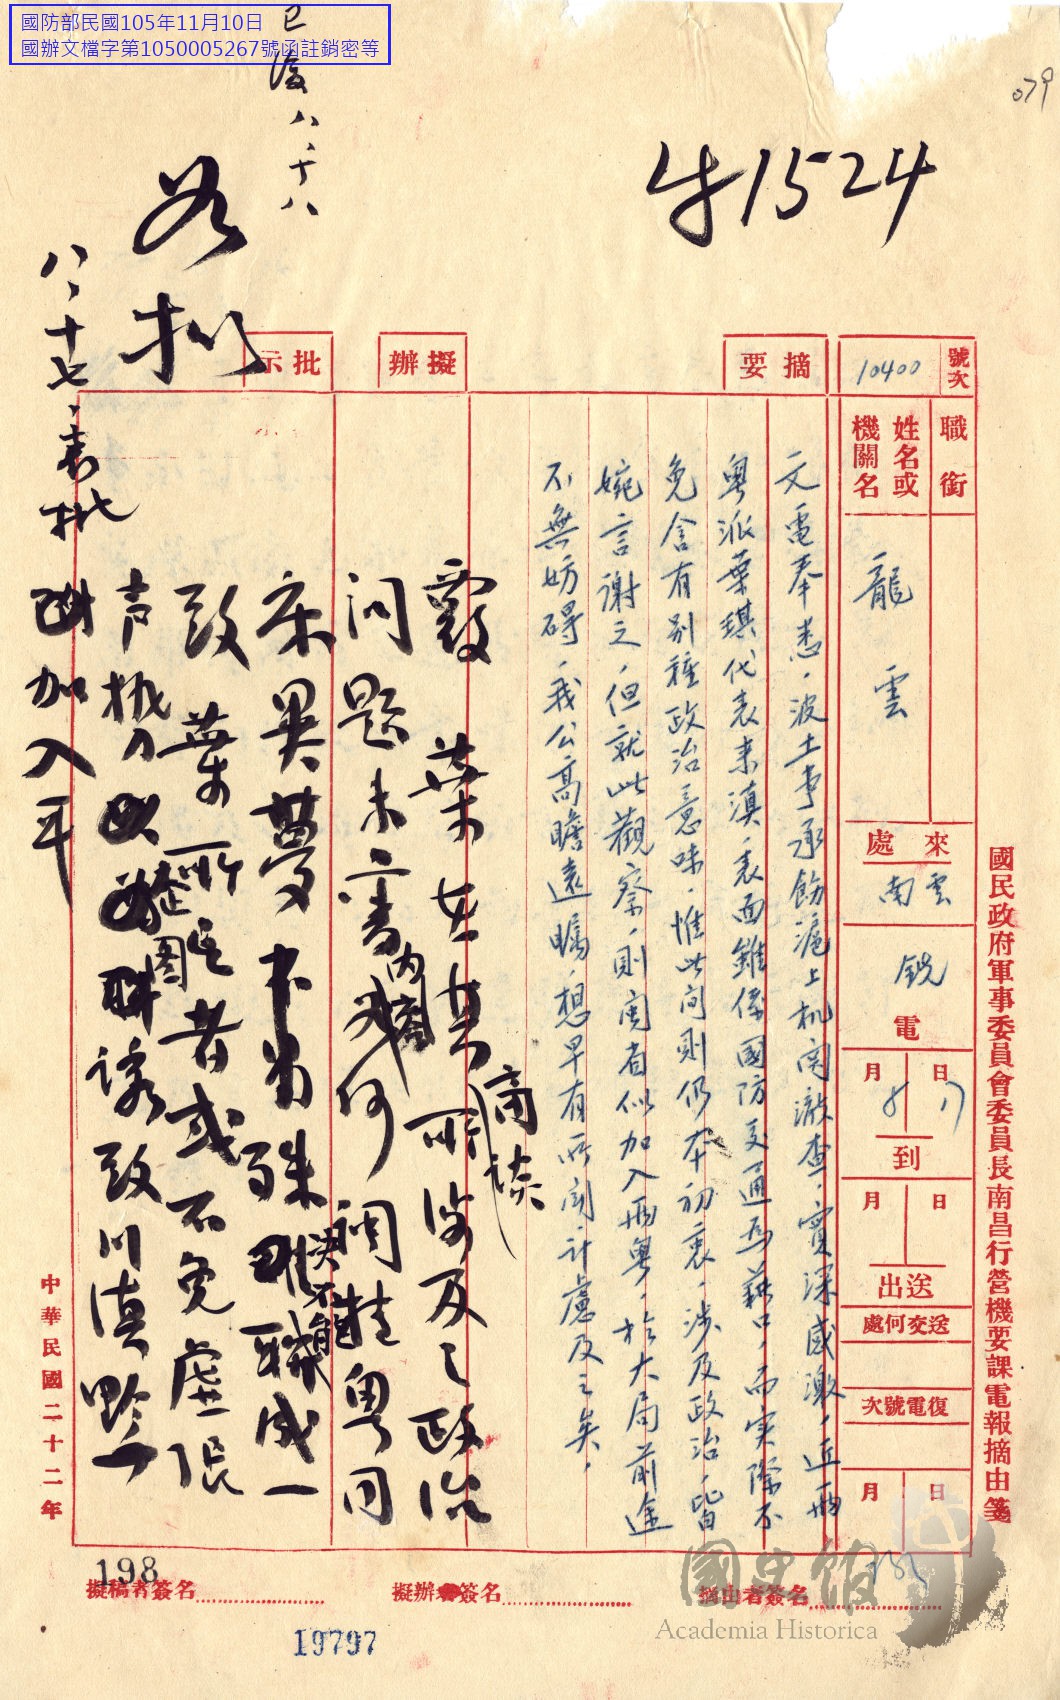 國防部民國105年11月10日
國辦文檔字第1050005267號函註銷密等
079
已復八、十八
牛1524
號次
10400
職銜
姓名或機關名
龍雲
來處
雲南
銑電
月 日
8 17
到
月 日
送出
送交何處
復電號次
月 日
國民政府軍事委員會委員長南昌行營機要課電報摘由箋
摘要
擬辦
批示
文電奉悉、波土事承飭滬上机関澈查、實深感激、近兩
粤派葉琪代表来滇、表面雖係國防交通為藉口、而实際不
免含有别種政治意味、惟此间則仍本初衷、涉及政治、皆
婉言謝之、但就此觀察、則闽省似加入兩粤、於大局前途
不無妨碍、我公高瞻遠矚、想早有所闻计慮及之矣、
覆 葉在貴所商談涉及之政治
问题未審内容如何 闽桂粤同
床異夢 决不能
致 葉所企图者或不免虚張
声势 誘致川滇黔
加入耳
如擬
八、十七、
中華民國二十二年
擬稿者簽名
擬辦者簽名
摘由者簽名
198
19797
國史館
Academia Historica